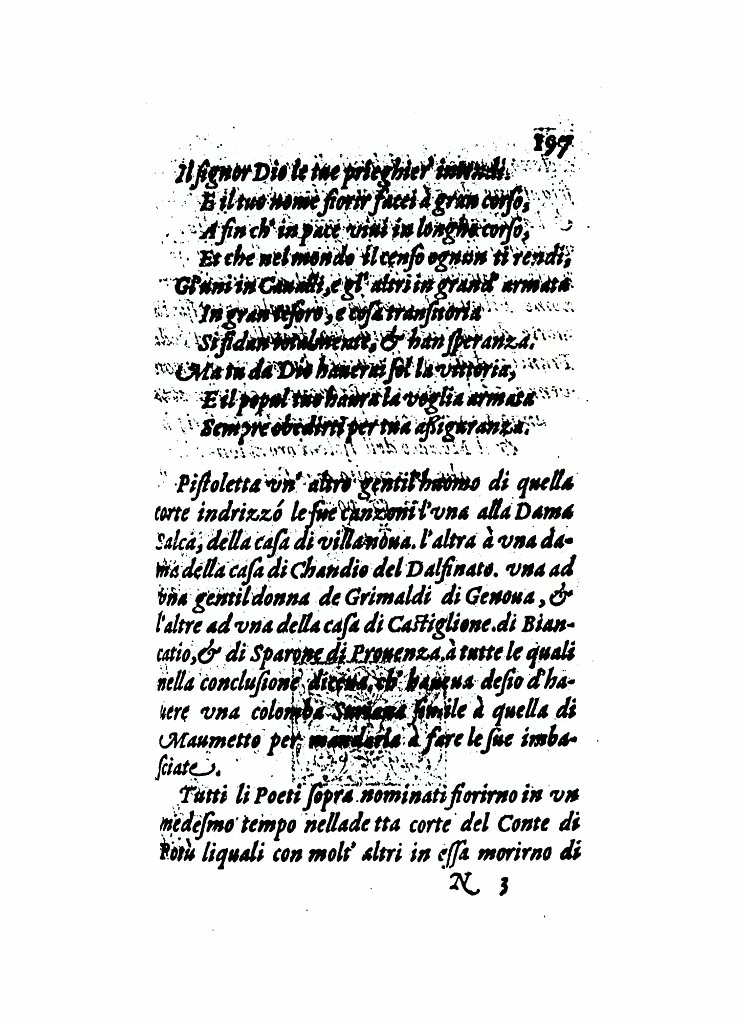 197
Il ſignor Dio le tue prieghier' intendi.
E il tuo nome fiorir facci à gran corſo,
A fin ch' in pace viui in longho corſo,
Et che nel mondo il cenſo ognun ti rendi,
Gl'uni in Caualli, e gl' altri in grand' armata
In gran teſoro, e coſa tranſitoria
Si fidan totalmente, & han ſperanza.
Ma tu da Dio hauerai ſol la vittoria,
E il popol tuo haura la voglia armata
Sempre obedirti per tua aßiguranza.
Piſtoletta vn' altro gentil'huomo di quella
corte indrizzó le ſue canzoni l'vna alla Dama
Salca, della caſa di villanoua. l'altra à vna da-
ma della caſa di Chandio del Dalfinato. vna ad
vna gentildonna de Grimaldi di Genoua, &
l'altre ad vna della caſa di Caſtiglione. di Bian-
catio, & di Sparone di Prouenza. à tutte le quali
nella concluſione diceua, ch' haueua deſio d'ha-
uere vna colomba Soriana ſimile à quella di
Maumetto per mandarla à fare le ſue imba-
ſciate.
Tutti li Poeti ſopra nominati fiorirno in vn
medeſmo tempo nella detta corte del Conte di
Potù liquali con molt' altri in eſſa morirno di
N 3